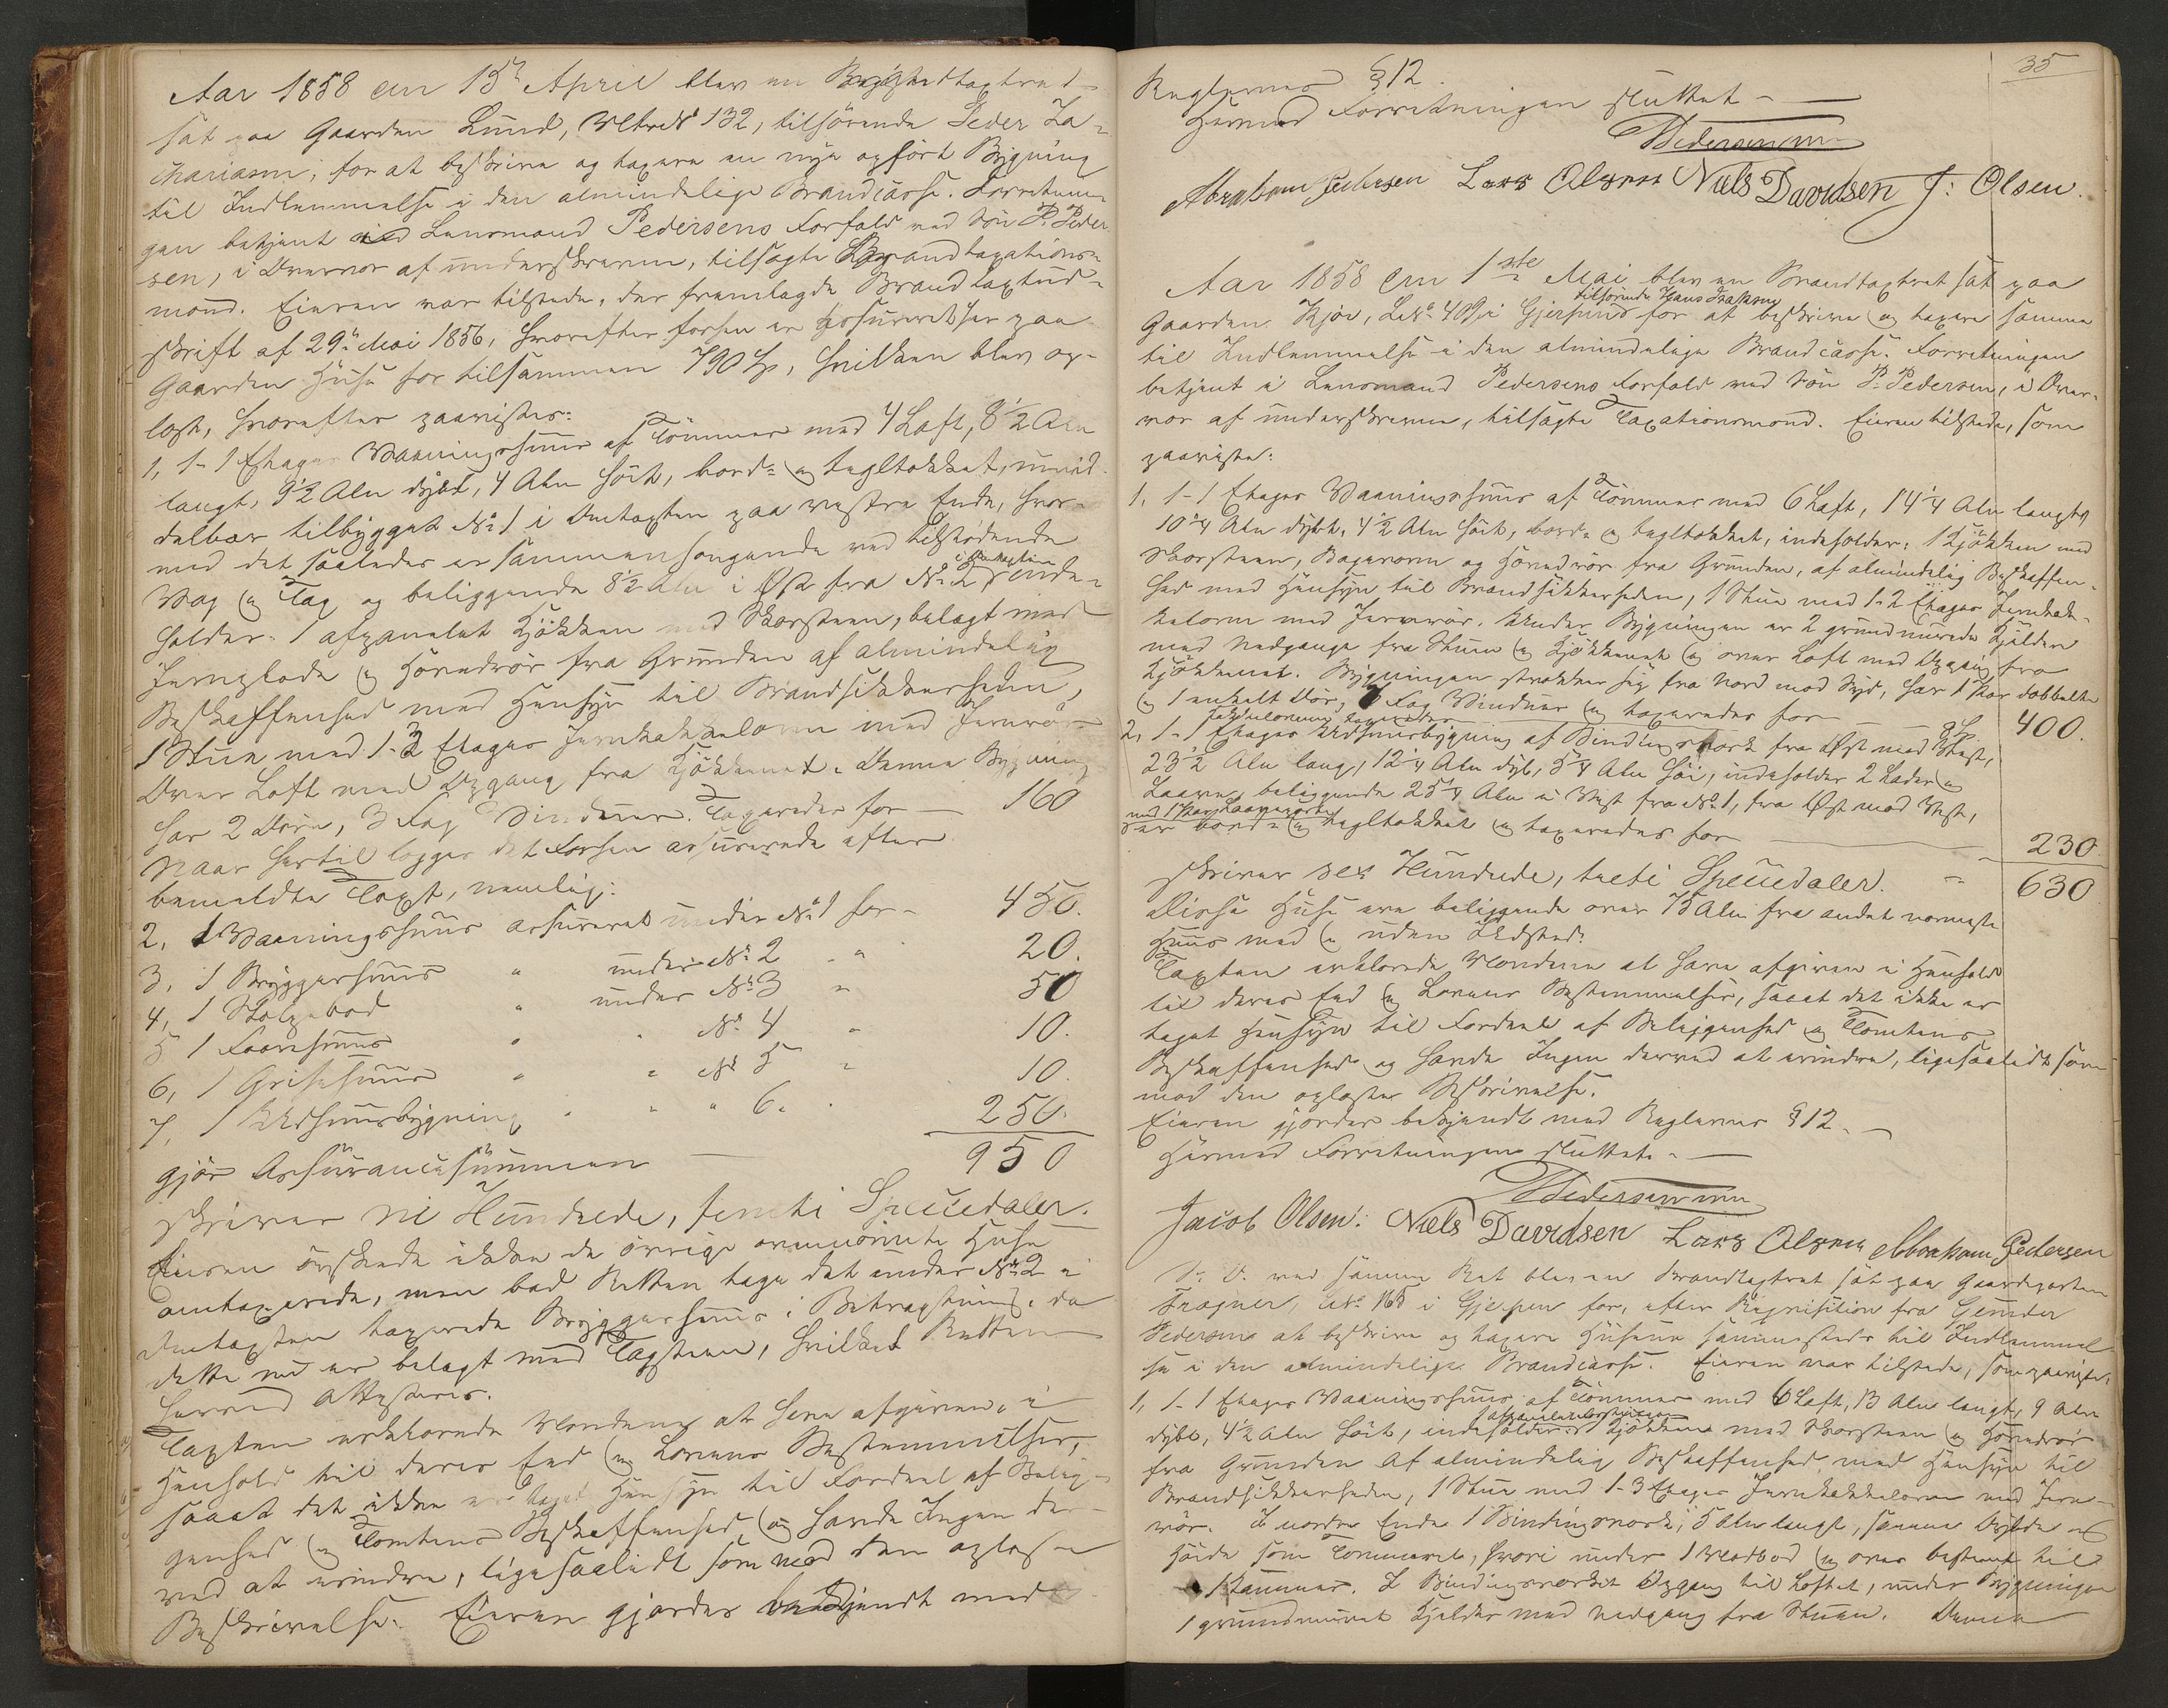 Aar 1858 den 15de April blev en Brandtaxtret
sat paa Gaarden Lund, MtrN 132, tilhörende Peder Za-
chariasen, for at beskrive og taxere en nye opfört Bygning
til Indlemmelse i den almindelige Brandcasse. Forretnin-
gen betjent ved Lensmand Pedersens Forfald ved Sön P. Peder
sen, i Overvær af underskrevne, tilsagte Brandtaxations-
mænd. Eieren var tilstede, der fremlagde Brandtaxtud-
skrift af 29de Mai 1856, hvorefter forhen er Assureret her paa
Gaarden Huse for tilsammen 790 Sp, hvilken blev op-
læst, hvorefter paavistes:
1, 1- 1 Etages Vaaningshuus af Tömmer med 4 Laft, 8 1/2 Alen
langt, 9 1/2 Alen dybt, 4 Alen höit, bord- og tegltækket, umid-
delbar tilbygget No 1 i Omtaxten paa vestre Ende, hvor-
med det saaledes er sammenhængende ved tilstödende
Væg og Tag og beliggende 8 1/2 Alen i Öst fra No 2 i Omtaxten, inde-
holder: 1 afpanelet Kjökken med Skorsteen, belagt med
Jernplade og Hörendrör fra Grunden af almindelig
Beskaffenhed med Hensyn til Brandsikkerheden,
1 Stue med 1- 2 Etages Jernkakkelovn med Jernrör
Over Loft med Opgang fra Kjökkenet. Denne Bygning
har 2 Döre, 3 Fag Vinduer. Taxeredes for — 160
Naar hertil lægges det forhen assurerede efter
bemeldte Taxt, nemlig:
2, 1 Vaaningshuus assureret under No 1 for - 450.
3, 1 Bryggerhuus " under No 2 " 20.
4, 1 Stolpebod " under No 3 " 50
5 1 Faarehuus " " No 4 " 10.
6, 1 Grisehuus " " No 5 " 10.
7, 1 Udhuusbygning " " " 6. " 250.
gjör Assurancesummen — 950
skriver ni Hundrede, femti Speciedaler.
Eieren önskede ikke de övrige ommeldte Huse
omtaxerede, men bad Retten tage det under No 2 i
Omtaxten taxerede Bryggerhuus i Betragtning, da
dette nu er belagt med Tagsteen, hvilket Retten
herved attesterer.
Taxten erklærede Mændene at have afgiven, i
Henhold til deres Eed og Lovens Bestemmelser,
saaat det ikke er taget Hensyn til Fordeel af Belig-
genhed og Tomtens Beskaffenhed, og havde Ingen der
ved at erindre, ligesaalidt som med den oplæste
Beskrivelse. Eieren gjordes bekjendt med
35
Reglernes § 12.
Hermed Forretningen sluttet. —
Pedersen
Abraham Pedersen Lars Olsen Niels Davidsen J: Olsen.
Aar 1858 den 1ste Mai blev en Brandtaxtret sat paa
Gaarden Kjær, LNo 409 i Gjerpen tilhörende Hans Isaksen for at beskrive og taxere samme
til Indlemmelse i den almindelige Brandcasse. Forretningen
betjent i Lensmand Pedersens Forfald ved Sön P. Pedersen, i Over-
vær af underskrevne, tilsagte Taxationsmænd. Eieren tilstede, som
paaviste:
1, 1- 1 Etages Vaaningshuus af Tömmer med 6 Laft, 14 1/4 Alen langt,
10 1/4 Alen dybt, 4 1/2 Alen höit, bord- og tegltækket, indeholder: 1 Kjökken med
Skorsteen, Bagerovn og Hörendrör fra Grunden, af almindelig Beskaffen-
hed med Hensyn til Brandsikkerheden, 1 Stue med 1- 2 Etages Jernkak-
kelovn med Jernrör. Under Bygningen er 2 grundmurede Kjældere
med Nedgange fra Stuen og Kjökkenet og over Loft med Opgang fra
Kjökkenet. Bygningen strækker sig fra Nord mod Syd, har 1 Par dobbelte
og 1 enkelt Dör, 6 Fag Vinduer og taxeredes for — 400.
2, 1- 1 Etages Udhuusbygning af Bindingsværk fra Öst mod Vest,
23 1/2 Alen lang, 12 1/4 Alen dyb, 5 1/4 Alen höi, indeholder 2 Lader og
Laave, beliggende 25 1/4 Alen i Vest fra No 1, fra Öst mod Vest,
med 1 Par Laaveporte
er bord- og tegltækket og taxeredes for — 230.
skriver sex Hundrede, treti Speciedaler. " 630
Disse Huse ere beliggende over 75 Alen fra andet nærmeste
Huus med og uden Ildsted.
Taxten erklærede Mændene at have afgiven i Henhold
til deres Eed og Lovens Bestemmelser, saaat det ikke er
taget Hensyn til Fordeel af Beliggenhed og Tomtens
Beskaffenhed og havde Ingen derved at erindre, ligesaalidt som
med den oplæste Beskrivelse.
Eieren gjordes bekjendt med Reglernes § 12.
Hermed Forretningen sluttet. —
Pedersen
Jacob Olsen. Niels Davidsen Lars Olsen Abraham Pedersen
S. D. ved samme Ret blev en Brandtaxtret sat paa Gaardparten
Frogner, LNo 165 i Gjerpen for, efter Reqvisition fra Gunder
Pedersen at beskrive og taxere Husene sammesteds til Indlemmel
se i den almindelige Brandcasse. Eieren var tilstede, som paaviste:
1, 1- 1 Etages Vaaningshuus af Tömmer med 6 Laft, 13 Alen langt, 9 Alen
dybt, 4 1/2 Alen höit, indeholder: 1 Kjökken med Skorsteen og Hörendrör
fra Grunden af almindelig Beskaffenhed med Hensyn til
Brandsikkerheden, 1 Stue med 1- 3 Etages Jernkakkelovn med Jern-
rör. I nordre Ende 1 Bindingsværk, 5 Alen langt, samme Dybde og
Höide som Tömmeret, hvori under 1 Vedbod og over bestemt til
1 Kammer. I Bindingsværket Opgang til Loftet, under Bygningen
1 grundmuret Kjelder med Nedgang fra Stuen. Denne